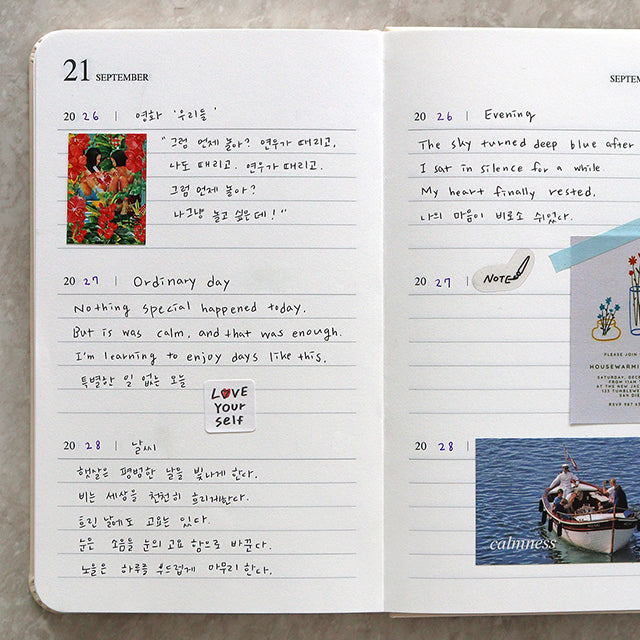 21 SEPTEMBER
20 26 | 영화 '우리들'
"그럼 언제 놀아? 연우가 때리고,
나도 때리고. 연우가 때리고.
그럼 언제 놀아?
나 그냥 놀고 싶은데!"
20 27 | Ordinary day
Nothing special happened today.
But is was calm, and that was enough.
I'm learning to enjoy days like this.
특별한 일 없는 오늘
LOVE
Your
self
20 28 | 날씨
햇살은 평범한 날을 빛나게 한다.
비는 세상을 천천히 흐리게한다.
흐린 날에도 고요는 있다.
눈은 소음을 눈의 고요 함으로 바꾼다.
노을은 하루를 부드럽게 마무리 한다.
SEPTEM
20 26 | Evening
The sky turned deep blue after
I sat in silence for a while.
My heart finally rested.
나의 마음이 비로소 쉬었다.
20 27 |
NOTE
PLEASE JOIN
HOUSEWARMI
SATURDAY, DEC
FROM 11AM
AT THE NEW JA
123 TUMBLEWE
SAN DI
RSVP 987 65
20 28 |
calmness